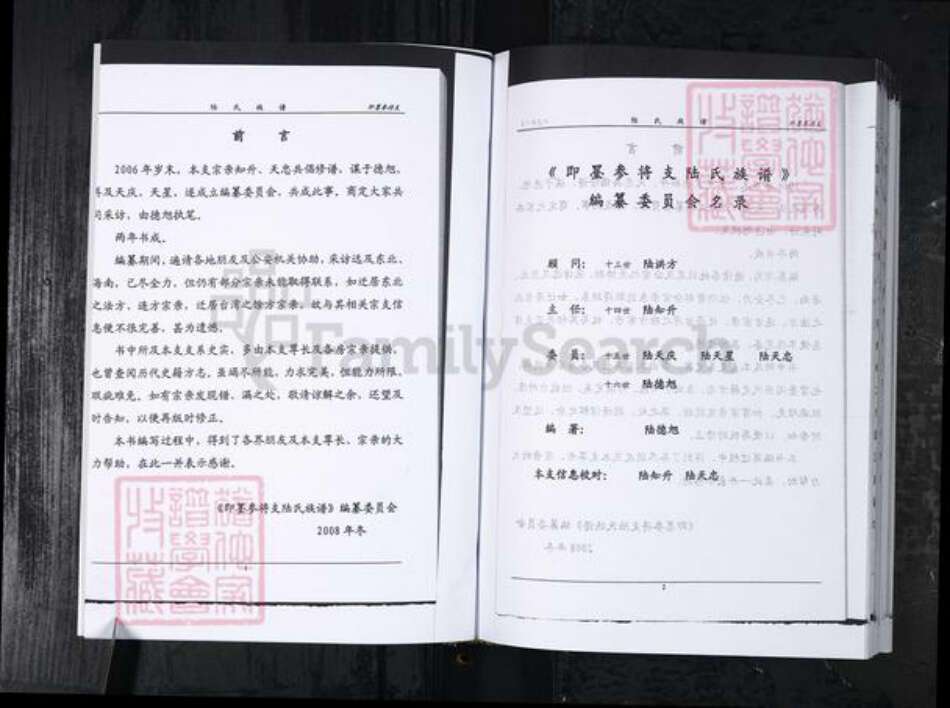 陆氏族谱 即墨参将支
前言
2006年岁末，本支宗亲知升、天忠共倡修谱，谋于德旭，
及天庆、天星，遂成立编纂委员会，共成此事，商定大家共
同采访，由德旭执笔。
两年书成。
编纂期间，遍请各地朋友及公安机关协助，采访远及东北、
海南，已尽全力，但仍有部分宗亲未能取得联系，如迁居东北
之法方、连方宗亲，迁居台湾之锦方宗亲，故与其相关宗支信
息便不很完善，甚为遗憾。
书中所及本支支系史实，多由本支尊长及各房宗亲提供，
也曾查阅历代史籍方志，虽竭尽所能，力求完美，但能力所限，
瑕疵难免，如有宗亲发现错、漏之处，敬请谅解之余，还望及
时告知，以便再版时修正。
本书编写过程中，得到了各界朋友及本支尊长、宗亲的大
力帮助，在此一并表示感谢。
《即墨参将支陆氏族谱》编纂委员会
2008年冬
陆氏族谱 即墨参将支
《即墨参将支陆氏族谱》
编纂委员会名录
顾问： 十三世 陆洪方
主任： 十四世 陆知升
委员： 十五世 陆天庆 陆天星 陆天忠
十六世 陆德旭
编著： 陆德旭
本支信息校对： 陆知升 陆天忠
2
FamilySearch